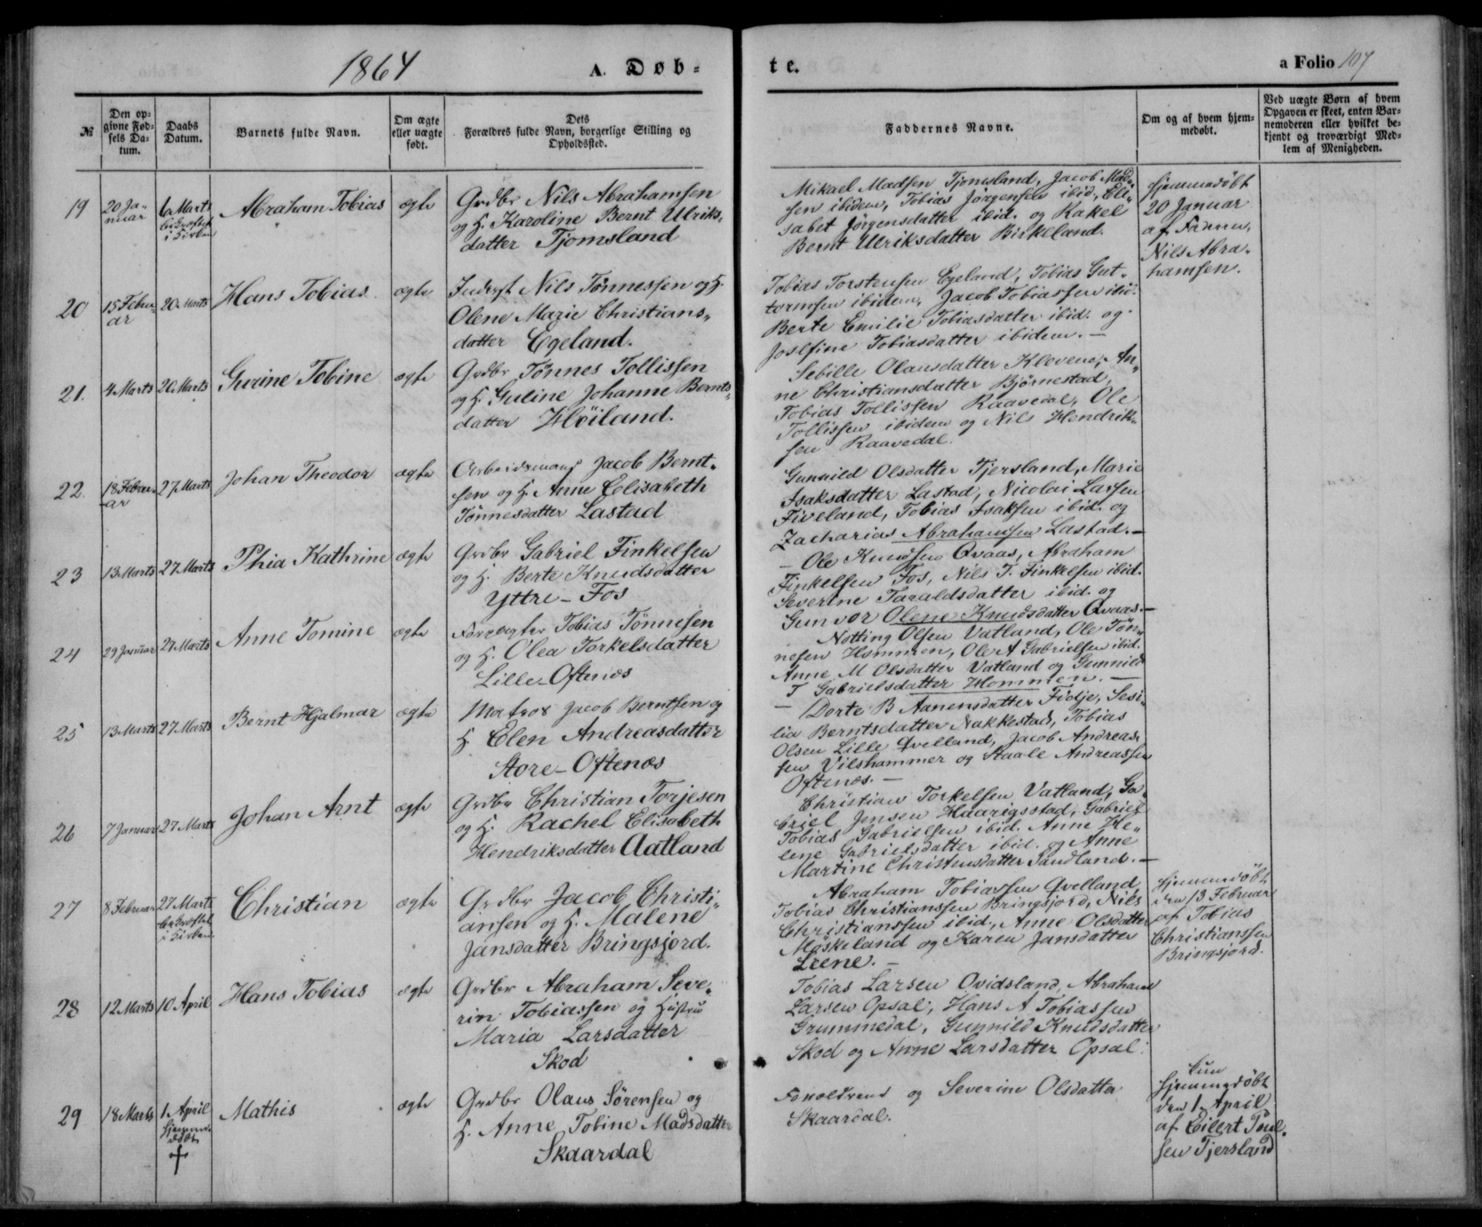 1864
A. Døb-
te.
a Folio 107
№
Den op-
givne Fød-
sels Da-
tum.
Daabs
Datum.
Barnets fulde Navn.
Om ægte
eller uægte
født.
Dets
Forældres fulde Navn, borgerlige Stilling og
Opholdssted.
Faddernes Navne.
Om og af hvem hjem-
medøbt.
Ved uægte Børn af hvem
Opgaven er skeet, enten Bar-
nemoderen eller hvilket be-
kjendt og troværdigt Med-
lem af Menigheden.
19
20 Ja-
nuar
6 Marts
i Kirken
Abraham Tobias
ægte
Grdbr Nils Abrahamsen
og H. Karoline Bernt Ulriks-
datter Tjomsland
Mikael Madsen Tjomsland, Jacob Mad-
sen ibidem, Tobias Jørgensen ibid., Eli-
sabet Jørgensdatter ibid. og Hakel
Bernt Ulriksdatter Birkeland.
Hjemmedøbt
20 Januar
af Faderen,
Nils Abra-
hamsen.
20
15 Febru-
ar
20 Marts
Hans Tobias
ægte
Inderst Nils Tønnessen og H.
Olene Marie Christians-
datter Egeland.
Tobias Torstensen Egeland, Tobias Gut-
tormsen ibidem, Jacob Tobiassen ibid.
Berte Emilie Tobiasdatter ibid. og
Josefine Tobiasdatter ibidem. —
21.
4 Marts
20 Marts
Gurine Tobine
ægte
Grdbr Tønnes Tollissen
og H. Guline Johanne Bernts-
datter Høiland.
Sebille Olausdatter Klevene, An-
ne Christiansdatter Bjørnestad,
Tobias Tollissen Raavedal, Ole
Tollissen ibidem og Nils Hendrik-
sen Raavedal.
22.
18 Febru-
ar
27 Marts
Johan Theodor
ægte
Arbeidsmand Jacob Bernt-
sen og H. Anne Elisabeth
Tønnesdatter Lastad
Gunvild Olsdatter Tjersland, Marie
Isaksdatter Lastad, Nicolai Larsen
Fiveland, Tobias Isaksen ibid. og
Zacharias Abrahamsen Lastad. —
23
13 Marts
27 Marts
Thia Kathrine
ægte
Grdbr Gabriel Finkelsen
og H. Berte Knudsdatter
Yttre-Fos
— Ole Knudsen Qvaas, Abraham
Finkelsen Fos, Nils T. Finkelsen ibid.
Severine Taraldsdatter ibid. og
Gunvor Olene Knudsdatter Qvaas. —
24
29 Januar
27 Marts
Anne Tomine
ægte
Forpagter Tobias Tønnesen
og H. Olea Torkelsdatter
Lille-Oftenæs
Notting Olsen Vatland, Ole Tøn-
nesen Hommen, Ole A Gabrielsen ibid.
Anne M Olsdatter Vatland og Gunnild
T Gabrielsdatter Hommen. —
25
13 Marts
27 Marts
Bernt Hjalmar
ægte
Matros Jacob Berntsen og
H. Elen Andreasdatter
Store-Oftenæs
— Dorte B Aanensdatter Fidje, Sesi-
lia Berntsdatter Nakkestad, Tobias
Olsen Lille Qvelland, Jacob Andreas-
sen Vilshammer og Staale Andreassen
Oftenæs. —
26
7 Januar
27 Marts
Johan Arnt
ægte
Grdbr Christian Torjesen
og H. Rachel Elisabeth
Hendriksdatter Aatland
Christian Torkelsen Vatland, Ga-
briel Jensen Haarigsstad, Gabriel
Tobias Gabrielsen ibid. Anne He-
lene Gabrielsdatter ibid. og Anne
Martine Christensdatter Sandland. —
27
8 Februar
27 Marts
i Kirken
Christian
ægte
Grdbr Jacob Christi-
ansen og H. Malene
Jansdatter Bringsjord.
Abraham Tobiassen Qvelland
Tobias Christianssen Bringsjord, Nils
Christianssen ibid., Anne Olsdatter
Møskeland og Karen Jansdatter
Leene. —
Hjemmedøbt
den 13 Februar
af Tobias
Christianssen
Bringsjord.
28
12 Marts
10 April
Hans Tobias
ægte
Grdbr Abraham Seve-
rin Tobiassen og Hustru
Maria Larsdatter
Skod
Tobias Larsen Ovidsland, Abraham
Larsen Opsal, Hans A Tobiassen
Grummedal, Gunnild Knudsdatter
Skod og Anne Larsdatter Opsal.
29
18 Marts
1 April
hjemme-
døbt
†
Mathis
ægte
Grdbr Olaus Sørensen og
H. Anne Tobine Madsdatter
Skaardal
Forældrene og Severine Olsdatter
Skaardal.
Kun
Hjemmedøbt
den 1 April
af Eilert Poul-
sen Tjersland